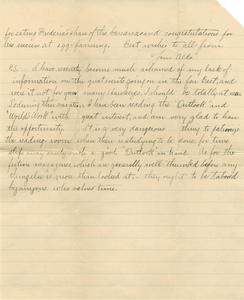 for eating Frederic's share of the bananas and congratulations for
his success at egg-farming. Best wishes to all from
Your Aldo
P.S. I have recently become much ashamed of my lack of
information on the great events going on in the far East, and
were it not for many I should be totally at sea.
So during this vacation I have been reading the "Outlook" and
"World's Work" with great interest, and am very glad to have
the opportunity. It is a very dangerous thing to patronize
the reading room when there is studying to be done for time
slips away easily with a good "Outlook" in hand. As for the
fiction magazines, which are generally well thumbed before any-
thing else is more than looked at, - they ought to be tabooed
by anyone who values time.